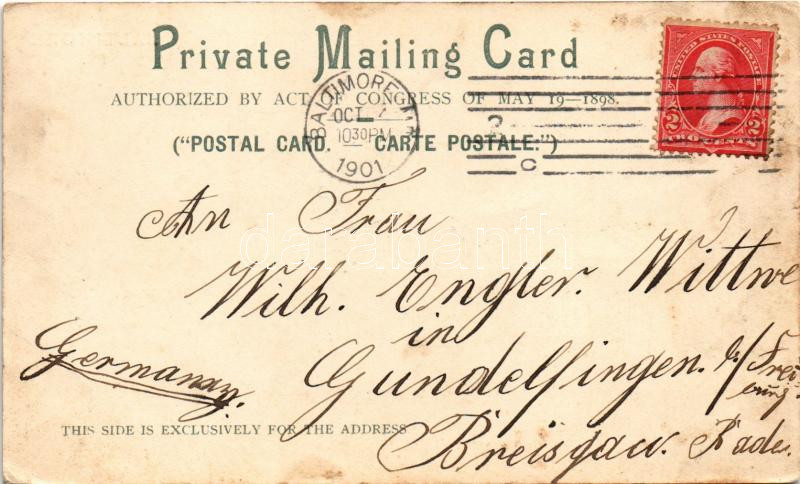 Private Mailing Card
AUTHORIZED BY ACT OF CONGRESS OF MAY 19—1898.
("POSTAL CARD. CARTE POSTALE.")
BALTIMORE, M
OCT
10 30 PM
1901
UNITED STATES POSTAGE
2 CENTS 2
An Frau
Wilh. Engler. Wittwe
in
Gundelfingen. b/ Frei
burg.
Breisgau. Baden.
Germany.
THIS SIDE IS EXCLUSIVELY FOR THE ADDRESS
databanth